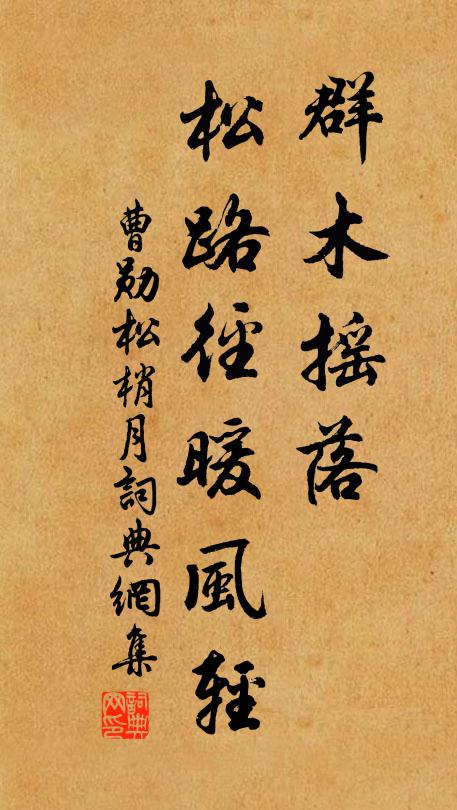 群木摇落
松路徑暖風輕
曹勛松梢月詞典網集
詞典網印